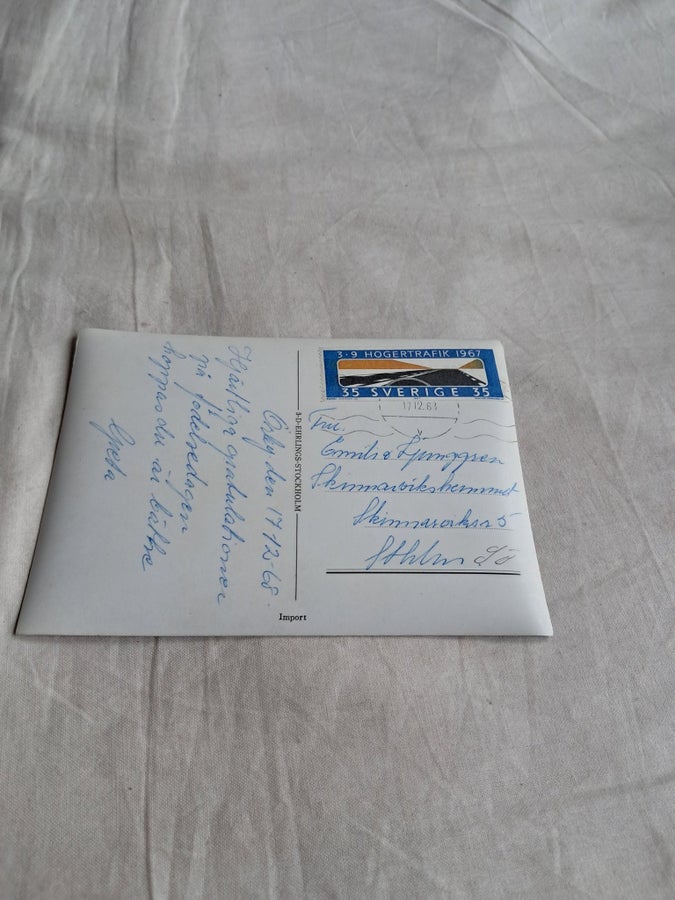 3·9 HÖGERTRAFIK 1967
35 SVERIGE 35
17.12.68
Fru.
Emilia Ljunggren
Skinnarvikshemmet
Skinnarviksr 5
Sthlm Sö
S-D-EHRLINGS-STOCKHOLM
Import
den 17-12-68.
Hjärtliga gratulationer
på födelsedagen
hoppas du är bättre
Greta